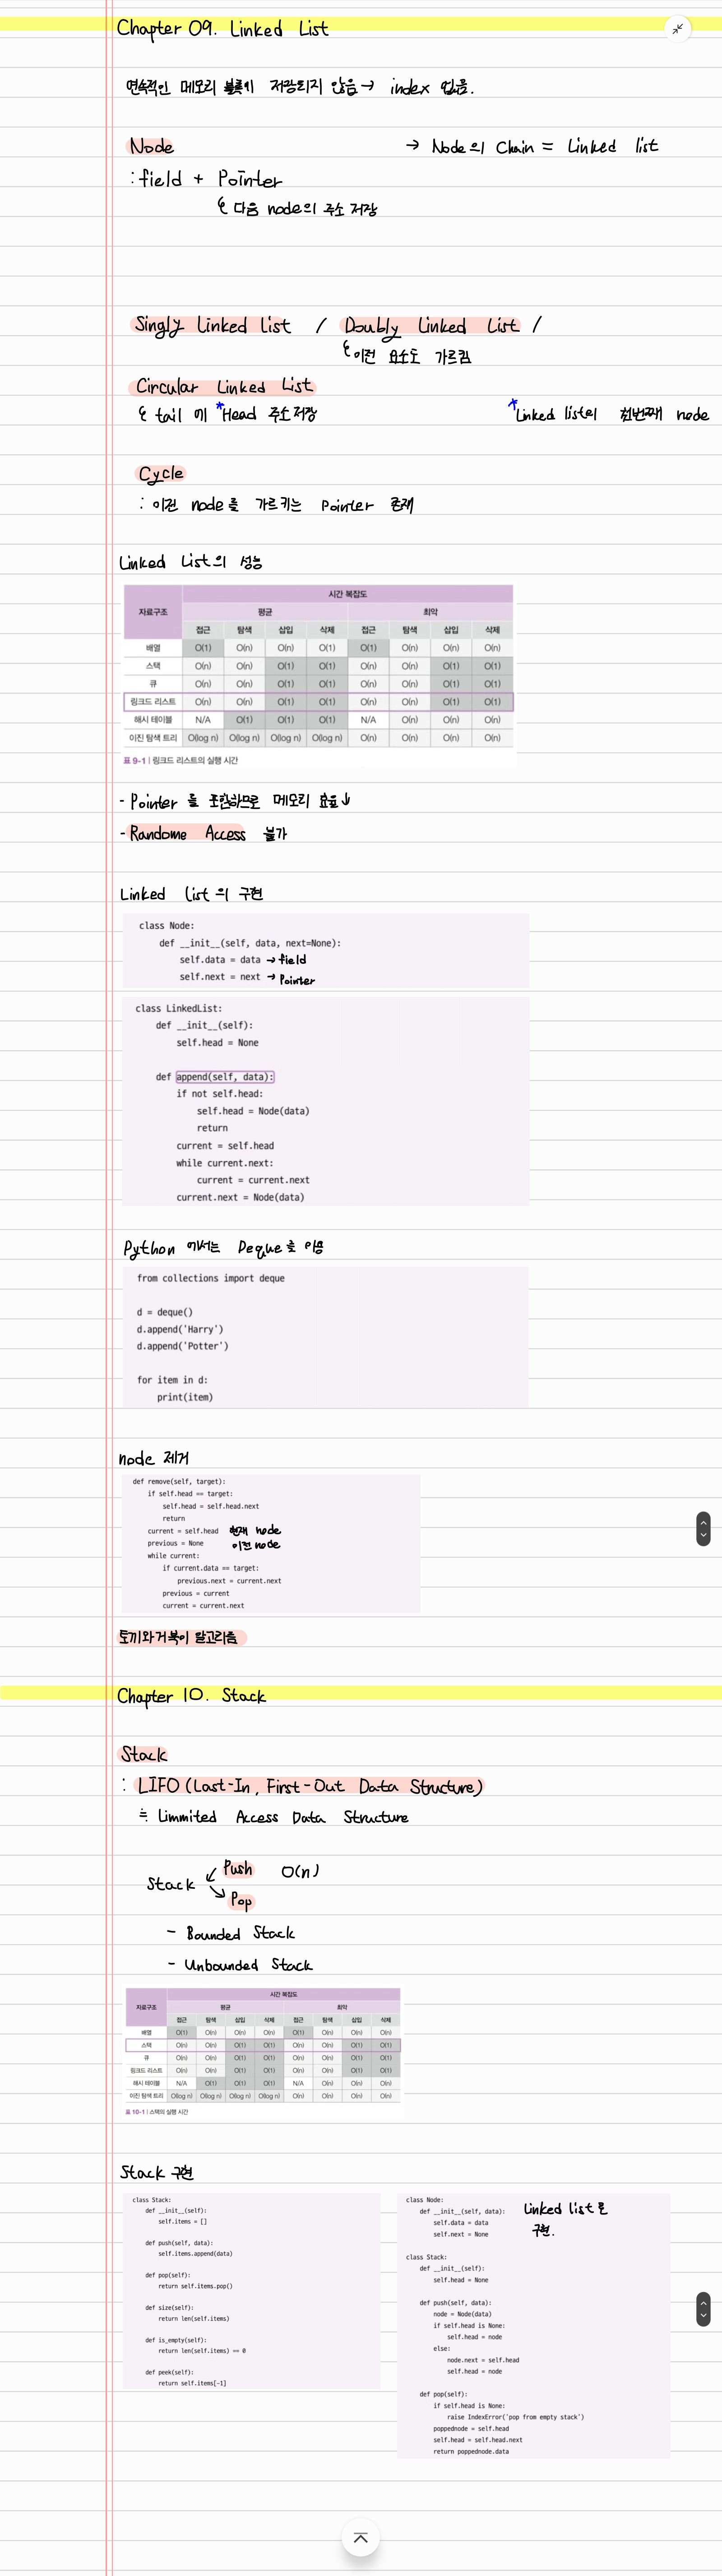 Chapter 09. Linked List
연속적인 메모리 블록이 저장되지 않음 → index 없음.
Node → Node의 Chain = Linked list
: field + Pointer
다음 node의 주소 저장
Singly Linked List / Doubly Linked List /
이전 요소도 가르킴
Circular Linked List
tail 에 *Head 주소 저장 *Linked list의 첫번째 node
Cycle
: 이전 node를 가르키는 Pointer 존재
Linked List의 성능
자료구조 시간 복잡도
평균 최악
접근 탐색 삽입 삭제 접근 탐색 삽입 삭제
배열 O(1) O(n) O(n) O(1) O(1) O(n) O(n) O(n)
스택 O(n) O(n) O(1) O(1) O(n) O(n) O(1) O(1)
큐 O(n) O(n) O(1) O(1) O(n) O(n) O(1) O(1)
링크드 리스트 O(n) O(n) O(1) O(1) O(n) O(n) O(1) O(1)
해시 테이블 N/A O(1) O(1) O(1) N/A O(n) O(n) O(n)
이진 탐색 트리 O(log n) O(log n) O(log n) O(log n) O(n) O(n) O(n) O(n)
표 9-1 | 링크드 리스트의 실행 시간
- Pointer 를 포함하므로 메모리 효율↓
- Randome Access 불가
Linked list의 구현
class Node:
def __init__(self, data, next=None):
self.data = data → field
self.next = next → Pointer
class LinkedList:
def __init__(self):
self.head = None
def append(self, data):
if not self.head:
self.head = Node(data)
return
current = self.head
while current.next:
current = current.next
current.next = Node(data)
Python 에서는 Deque를 이용
from collections import deque
d = deque()
d.append('Harry')
d.append('Potter')
for item in d:
print(item)
node 제거
def remove(self, target):
if self.head == target:
self.head = self.head.next
return
current = self.head 현재 node
previous = None 이전 node
while current:
if current.data == target:
previous.next = current.next
previous = current
current = current.next
토끼와거북이 알고리즘
Chapter 10. Stack
Stack
: LIFO (Last-In, First-Out Data Structure)
≒ Limmited Access Data Structure
Push O(n)
Stack
Pop
- Bounded Stack
- Unbounded Stack
자료구조 시간 복잡도
평균 최악
접근 탐색 삽입 삭제 접근 탐색 삽입 삭제
배열 O(1) O(n) O(n) O(n) O(1) O(n) O(n) O(n)
스택 O(n) O(n) O(1) O(1) O(n) O(n) O(1) O(1)
큐 O(n) O(n) O(1) O(1) O(n) O(n) O(1) O(1)
링크드 리스트 O(n) O(n) O(1) O(1) O(n) O(n) O(1) O(1)
해시 테이블 N/A O(1) O(1) O(1) N/A O(n) O(n) O(n)
이진 탐색 트리 O(log n) O(log n) O(log n) O(log n) O(n) O(n) O(n) O(n)
표 10-1 | 스택의 실행 시간
Stack 구현
class Stack:
def __init__(self):
self.items = []
def push(self, data):
self.items.append(data)
def pop(self):
return self.items.pop()
def size(self):
return len(self.items)
def is_empty(self):
return len(self.items) == 0
def peek(self):
return self.items[-1]
Linked list로
구현.
class Node:
def __init__(self, data):
self.data = data
self.next = None
class Stack:
def __init__(self):
self.head = None
def push(self, data):
node = Node(data)
if self.head is None:
self.head = node
else:
node.next = self.head
self.head = node
def pop(self):
if self.head is None:
raise IndexError('pop from empty stack')
poppednode = self.head
self.head = self.head.next
return poppednode.data